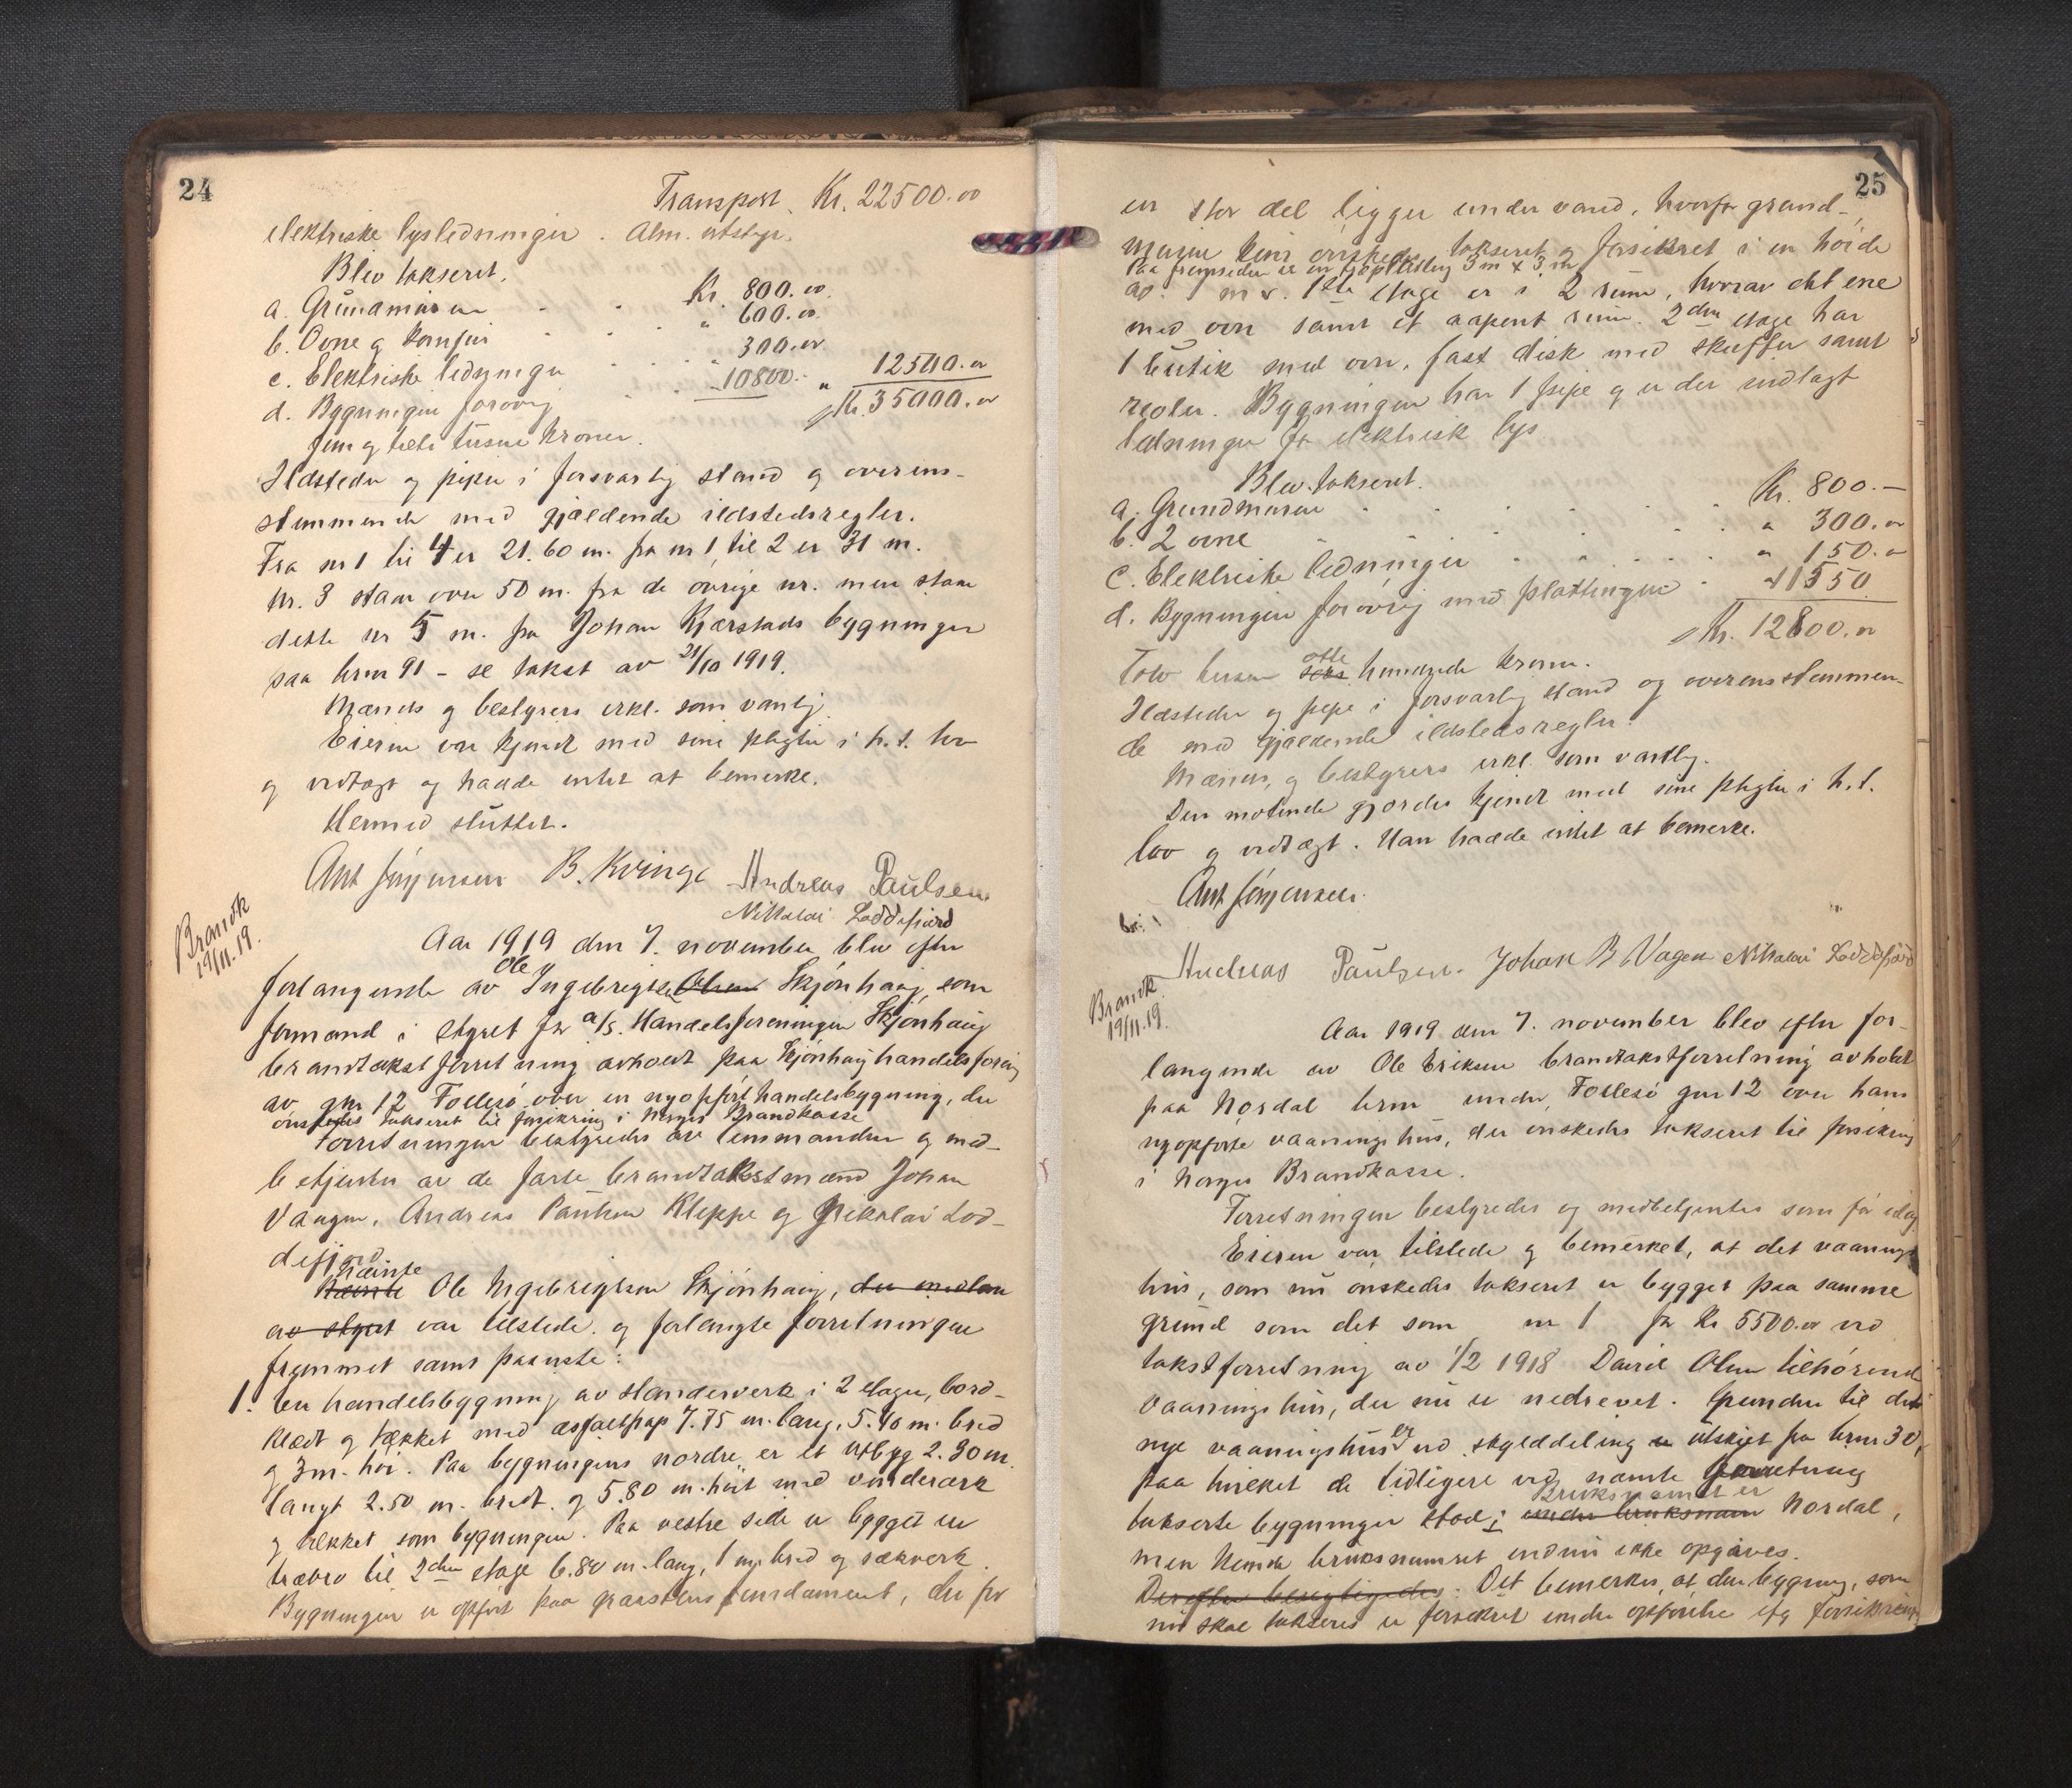 24
Transport. Kr. 22500.00
elektriske lysledninger. Alm. utstyr.
Blev takseret.
a. Grundmuren Kr. 800.00
b. Ovne og komfur " 600.00
c. Elektriske ledninger " 300.00
d. Bygningen forøvrig 10800.- " 12500.00
Kr. 35000.00
fem og treti tusen kroner.
Ildsteder og piper i forsvarlig stand og overens-
stemmende med gjældende ildstedsregler.
Fra nr 1 til 4 er 21.60 m. fra nr 1 til 2 er 31 m.
Nr. 3 staar over 50 m. fra de øvrige nr. men staar
dette nr 5 m. fra Johan Kjærstads bygninger
paa brnr 91 - se takst av 21/10 1919.
Mænds og bestyrers erkl. som vanlig.
Eieren var kjendt med sine pligter i h. t. lov
og vedtægt og hadde intet at bemerke.
Hermed sluttet.
Ant Jørgensen B. Kvinge Andreas Paulsen
Nikolai Loddefjord
Brandk
19/11.19.
Aar 1919 den 7. november blev efter
forlangende av Ole Ingebrigtsen Olsen Skjønhaug, som
formand i styret for a/s. Handelsforeningen Skjønhaug
brandtakstforretning avholdt paa Skjønhaug handelsforening
av gnr 12 Follesø over en nyopført handelsbygning, der
ønskedes takseret til forsikring i Norges Brandkasse
Forretningen bestyredes av lensmanden og med-
betjentes av de faste brandtakstmænd Johan
Vaagen, Andreas Paulsen Kleppe og Nikolai Lod-
defjord
Nævnte Ole Ingebrigtsen Skjønhaug, der medlem
av styret var tilstede og forlangte forretningen
fremmet samt paaviste:
1. En handelsbygning av standerverk i 2 etager, bord-
klædt og tækket med asfaltpap 7.75 m. lang, 5.40 m. bred
og 3 m. høi. Paa bygningens nordre er et utbyg 2.30 m.
langt 2.50 m. bredt og 5.80 m. høit med vinderark
og tækket som bygningen. Paa vestre side er bygget en
træbro til 2den etage 6.80 m. lang, 1 m. bred og rækverk.
Bygningen er opført paa graastens fundament, der for
25
en stor del ligger under vand, hvorfor grund-
muren kun ønskedes takseret og forsikret i en høide
Paa fremsiden er en træplatting 3 m x 3 m
av 1 m v. 1ste etage er i 2 rum, hvorav det ene
med ovn samt et aapent rum. 2den etage har
1 butik med ovn, fast disk med skuffer samt
reoler. Bygningen har 1 pipe og er der indlagt
ledninger for elektrisk lys
Blev takseret.
a. Grundmuren Kr. 800.-
b. 2 ovne " 300.00
c. Elektriske ledninger " 150.00
d. Bygningen forøvrig med plattingen " 11550
Kr. 12800.00
Tolv tusen seks otte hundrede kroner.
Ildsteder og pipe i forsvarlig stand og overensstemmen-
de med gjældende ildstedsregler.
Mænds og bestyrers erkl. som vanlig.
Den møtende gjordes kjendt med sine pligter i h. t.
lov og vedtægt. Han hadde intet at bemerke.
Ant Jørgensen.
Andreas Paulsen. Johan B Vagen Nikolai Loddefjord
Brandk.
19/11.19.
Aar 1919 den 7. november blev efter for-
langende av Ole Eriksen brandtakstforretning avholdt
paa Nordal brnr under Follesø gnr 12 over hans
nyopførte vaaningshus, der ønskedes takseret til forsikring
i Norges Brandkasse.
Forretningen bestyredes og medbetjentes som før idag.
Eieren var tilstede og bemerket, at det vaanings-
hus, som nu ønskedes takseret er bygget paa samme
grund som det som nr 1 for Kr 5500.00 ved
takstforretning av 1/2 1918 David Olsen tilhørende
vaaningshus, der nu er nedrevet. Grunden til dette
nye vaaningshus er ved skylddeling er utskiet fra brnr 30,
paa hvilket de tidligere ved nævnte forretning
takserte bygninger stod; under bruksnavn Bruksnavnet er Nordal,
men kunde bruksnumret endnu ikke opgives.
Derefter besigtigedes. Det bemerkes, at den bygning, som
nu skal takseres er forsikret under opførelse efg forsikrings